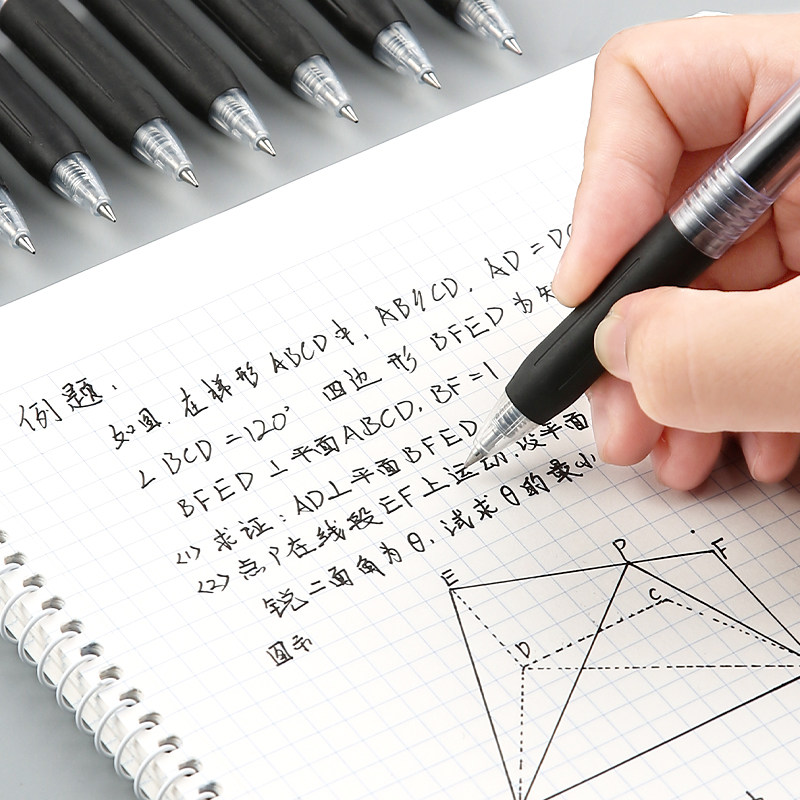 例题:
如图,在梯形ABCD中,AB∥CD,AD=DC
∠BCD=120° 四边形BFED为矩
BFED⊥平面ABCD,BF=1
(1)求证:AD⊥平面BFED
(2)点P在线段EF上运动,设平面
锐二面角为θ,试求θ的最小
图示
E
P
F
C
D